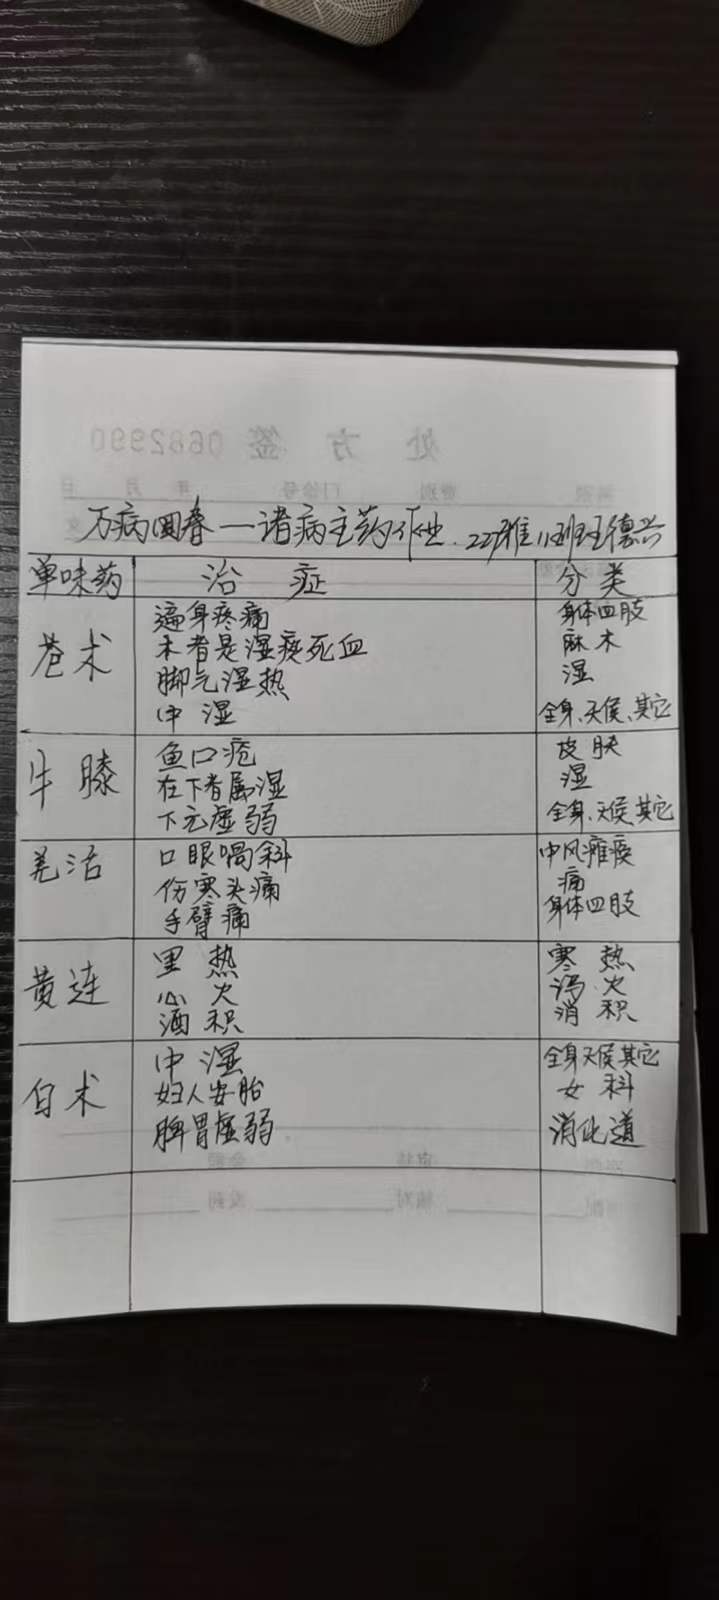 万病回春一诸病主药作业.22雅11班班德兴
单味药 治症 分类
苍术 遍身疼痛 身体四肢
木者是湿痰死血 麻木
脚气湿热 湿
中湿 全身、天侯、其它
牛膝 鱼口疮 皮肤
在下者属湿 湿
下元虚弱 全身、天侯、其它
羌活 口眼喎斜 中风瘫痪
伤寒头痛 痛
手臂痛 身体四肢
黄连 里热 寒热
心火 泻火
酒积 消积
白术 中湿 全身天侯其它
妇人安胎 女科
脾胃虚弱 消化道
处方签 0682990
年 月 日
门诊号
费别